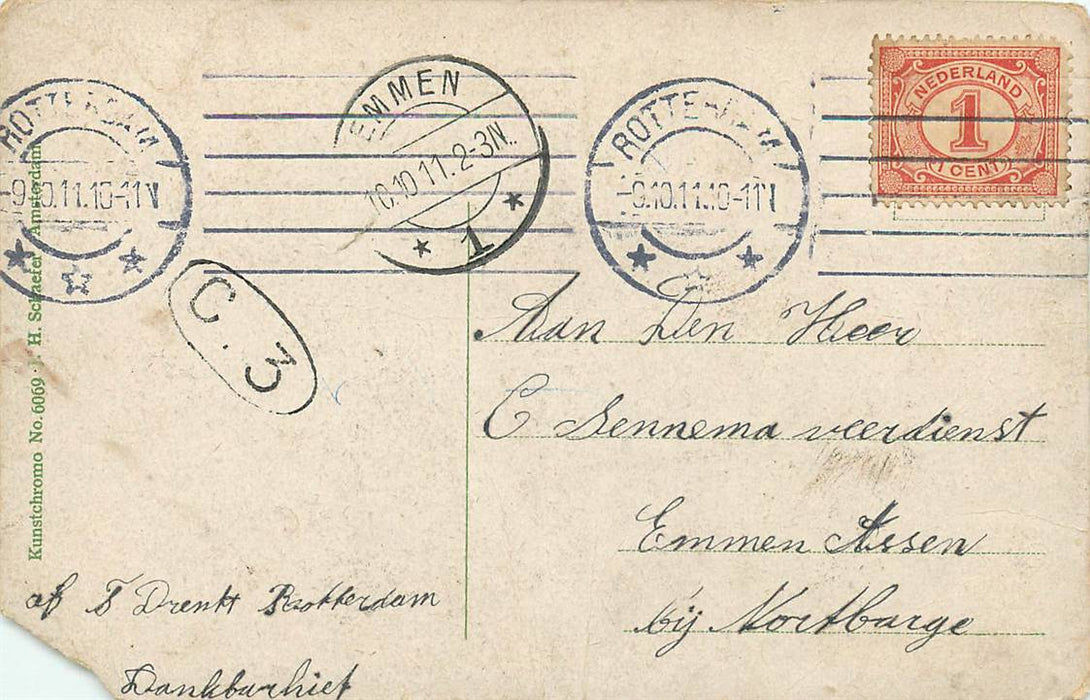 ROTTERDAM
-9.10.11.10-11V
EMMEN
10.10.11.2-3N.
1
ROTTERDAM
-9.10.11.10-11V
NEDERLAND
1
(1 CENT)
C.3
Kunstchromo No. 6069 · J. H. Schaefer Amsterdam
Aan Den Heer
C Sennema veerdienst
Emmen Assen
bij Nortbarge
af F Drenkt Rotterdam
Dankbarhiet